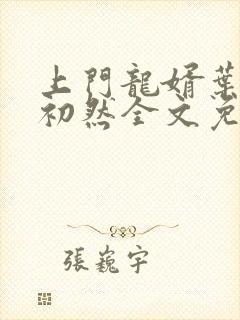 上門龍婿葉
初然全文免
張巍宇